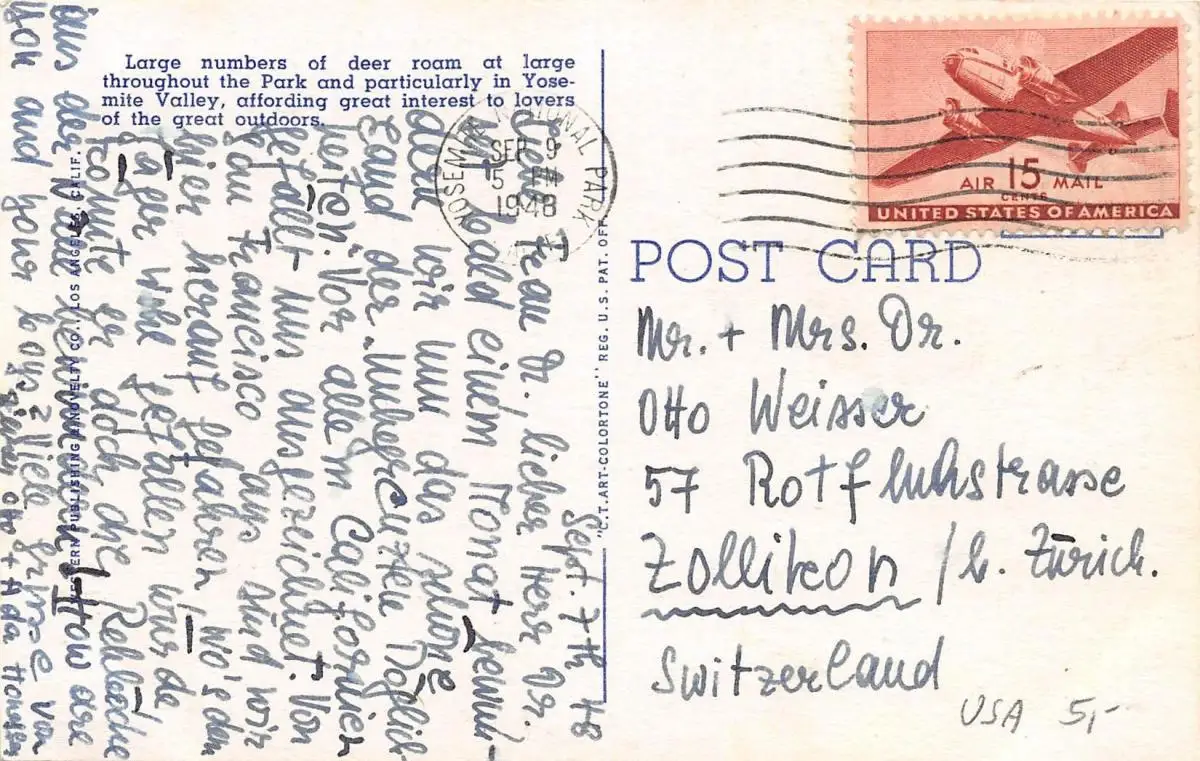 Large numbers of deer roam at large
throughout the Park and particularly in Yose-
mite Valley, affording great interest to lovers
of the great outdoors.
YOSEMITE NATIONAL PARK
SEP 9
5 PM
1948
AIR 15 MAIL
CENTS
UNITED STATES OF AMERICA
POST CARD
Mr. + Mrs. Dr.
Otto Weisser
57 Rotfluhstrasse
Zollikon / b. Zürich.
Switzerland
USA 5,-
"C.T. ART-COLORTONE" REG. U.S. PAT. OFF.
WESTERN PUBLISHING & NOVELTY CO., LOS ANGELES, CALIF.
Sept. 7th 48
Liebe Frau Dr., lieber Herr Dr.
Seit bald einem Monat
wir nun das schöne
Land der „Unbegrenzten Möglich-
keiten". Vor allem Californien
gefällt uns ausgezeichnet. Von
San Francisco aus sind wir
hier herauf gefahren, wo's dem
Jäger wohl gefallen würde
könnte er doch die Rehleche
aus der Nähe
How are
you and your boys? Viele Grüsse von
Otto + Ada